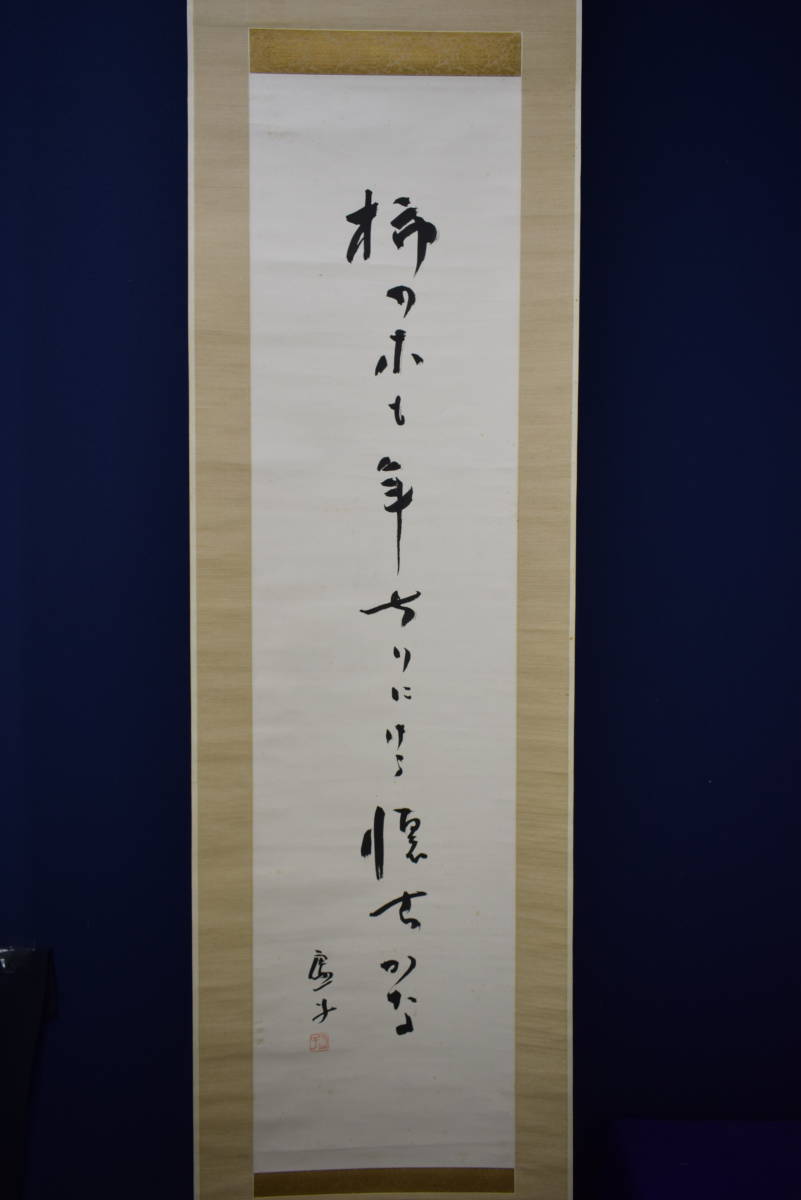 柿の木も年ふりにける懐古かな
虚子